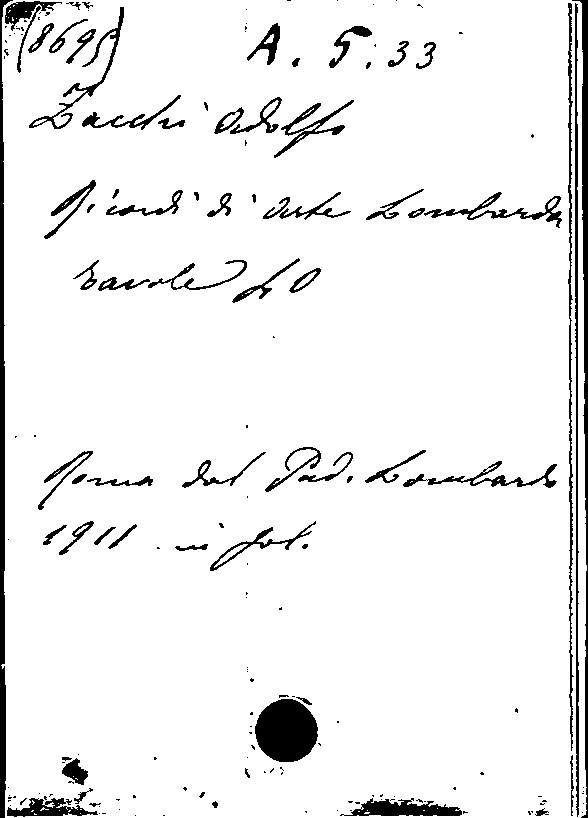 (8695) A. 5. 33
Zacchi Adolfo
Ricordi di Arte Lombarda
tavole 40
Roma dal Pad. Lombardo
1911 in fol.